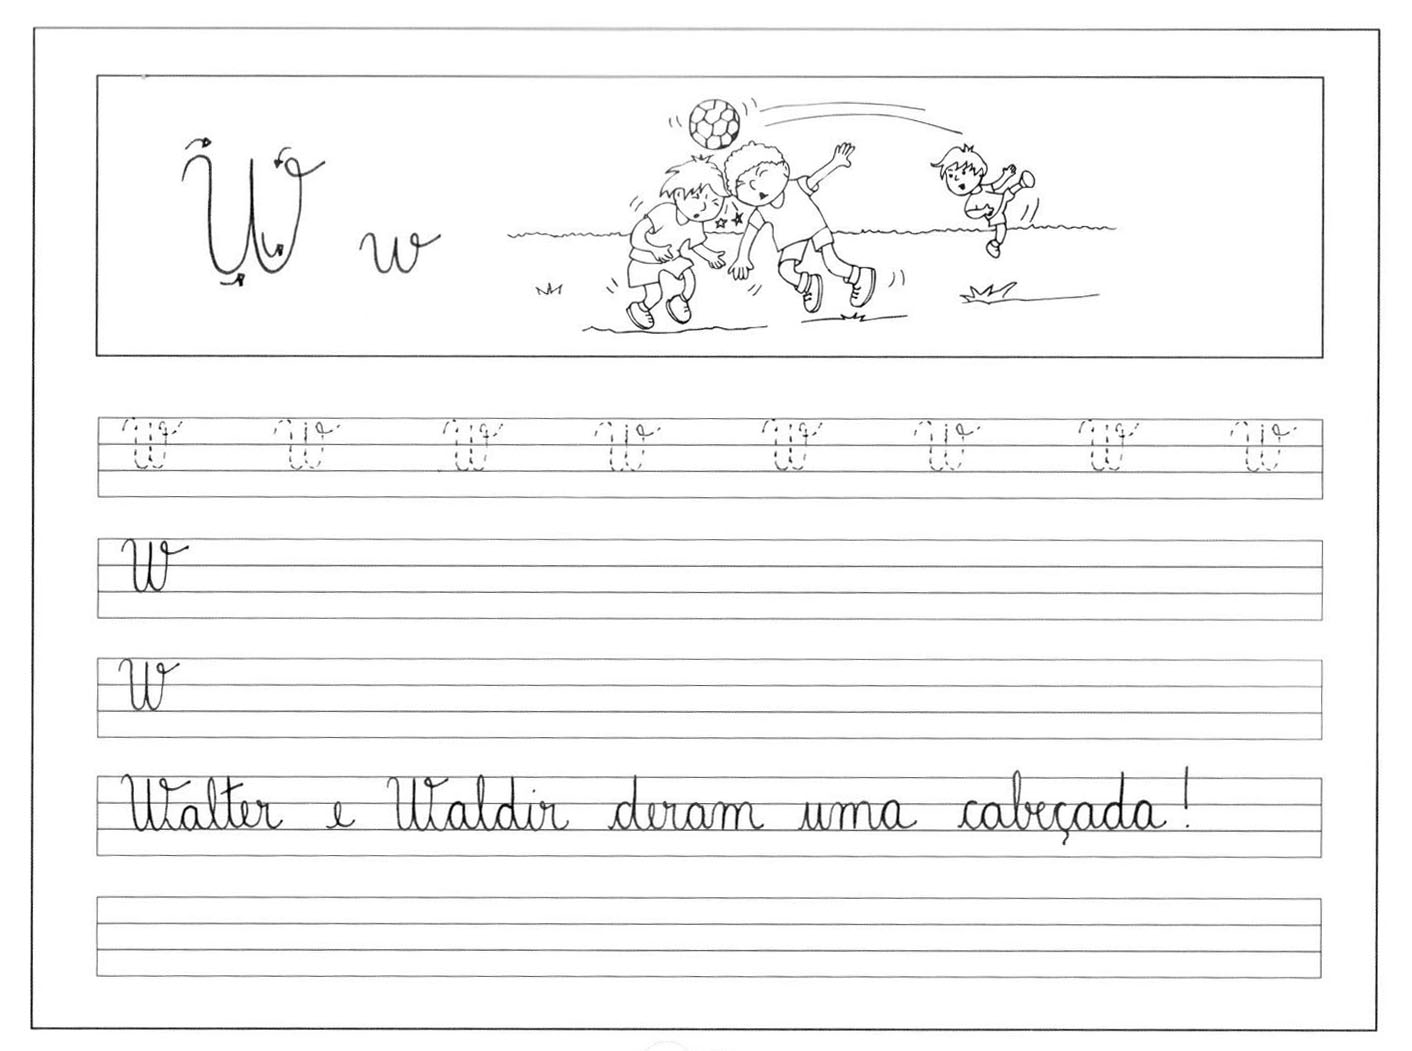 W w
W W W W W W W W
W
W
Walter e Waldir deram uma cabeçada!